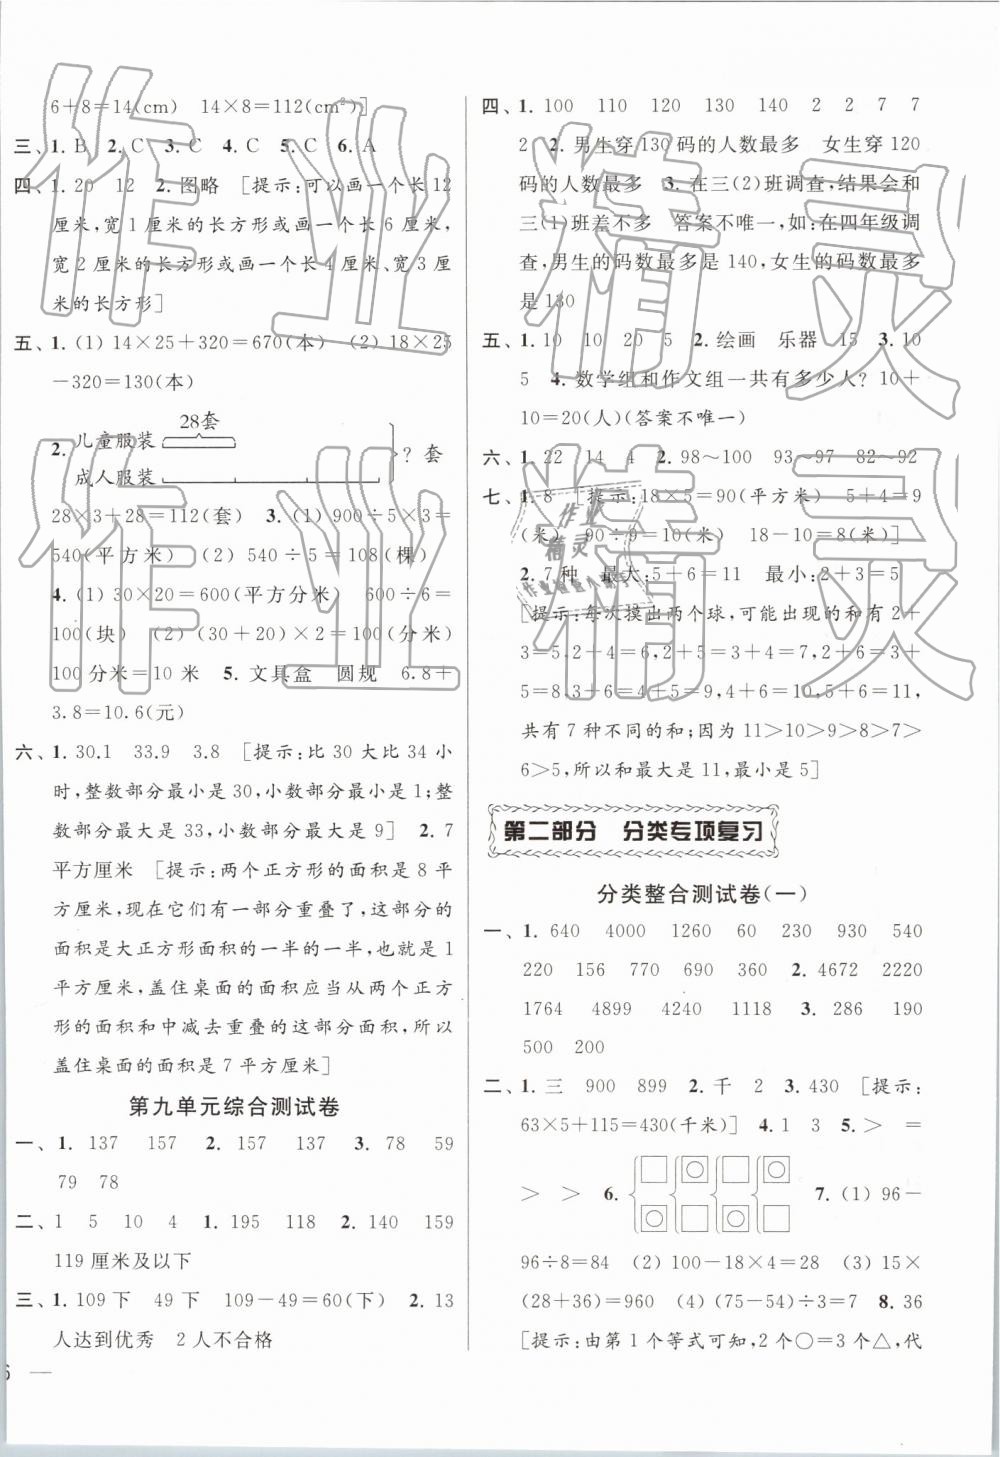 6+8=14(cm) 14×8=112(cm²)]
三、1. B 2. C 3. C 4. C 5. C 6. A
四、1. 20 12 2. 图略 [提示:可以画一个长 12
厘米,宽 1 厘米的长方形或画一个长 6 厘米,
宽 2 厘米的长方形或画一个长 4 厘米、宽 3 厘
米的长方形]
五、1. (1) 14×25+320=670(本) (2) 18×25
-320=130(本)
28套
2. 儿童服装
成人服装
? 套
28×3+28=112(套) 3. (1) 900÷5×3=
540(平方米) (2) 540÷5=108(棵)
4. (1) 30×20=600(平方分米) 600÷6=
100(块) (2) (30+20)×2=100(分米)
100 分米=10 米 5. 文具盒 圆规 6.8+
3.8=10.6(元)
六、1. 30.1 33.9 3.8 [提示:比 30 大比 34 小
时,整数部分最小是 30,小数部分最小是 1;整
数部分最大是 33,小数部分最大是 9] 2. 7
平方厘米 [提示:两个正方形的面积是 8 平
方厘米,现在它们有一部分重叠了,这部分的
面积是大正方形面积的一半的一半,也就是 1
平方厘米,盖住桌面的面积应当从两个正方
形的面积和中减去重叠的这部分面积,所以
盖住桌面的面积是 7 平方厘米]
第九单元综合测试卷
一、1. 137 157 2. 157 137 3. 78 59
79 78
二、1 5 10 4 1. 195 118 2. 140 159
119 厘米及以下
三、1. 109 下 49 下 109-49=60(下) 2. 13
人达到优秀 2 人不合格
6 —
四、1. 100 110 120 130 140 2 2 7 7
2 2. 男生穿 130 码的人数最多 女生穿 120
码的人数最多 3. 在三(2)班调查,结果会和
三(1)班差不多 答案不唯一,如:在四年级调
查,男生的码数最多是 140,女生的码数最多
是 130
五、1. 10 10 20 5 2. 绘画 乐器 15 3. 10
5 4. 数学组和作文组一共有多少人? 10+
10=20(人)(答案不唯一)
六、1. 22 14 4 2. 98～100 93～97 82～92
七、1. 8 [提示:18×5=90(平方米) 5+4=9
(米) 90÷9=10(米) 18-10=8(米)]
2. 7 种 最大:5+6=11 最小:2+3=5
[提示:每次摸出两个球,可能出现的和有 2+
3=5,2+4=6,2+5=3+4=7,2+6=3+
5=8,3+6=4+5=9,4+6=10,5+6=11,
共有 7 种不同的和;因为 11>10>9>8>7>
6>5,所以和最大是 11,最小是 5]
第二部分 分类专项复习
分类整合测试卷(一)
一、1. 640 4000 1260 60 230 930 540
220 156 770 690 360 2. 4672 2220
1764 4899 4240 1118 3. 286 190
500 200
二、1. 三 900 899 2. 千 2 3. 430 [提示:
63×5+115=430(千米)] 4. 1 3 5. > =
> > 6. 7. (1) 96-
96÷8=84 (2) 100-18×4=28 (3) 15×
(28+36)=960 (4) (75-54)÷3=7 8. 36
[提示:由第 1 个等式可知,2 个○=3 个△,代
作业精灵
作业精灵
作业
精灵